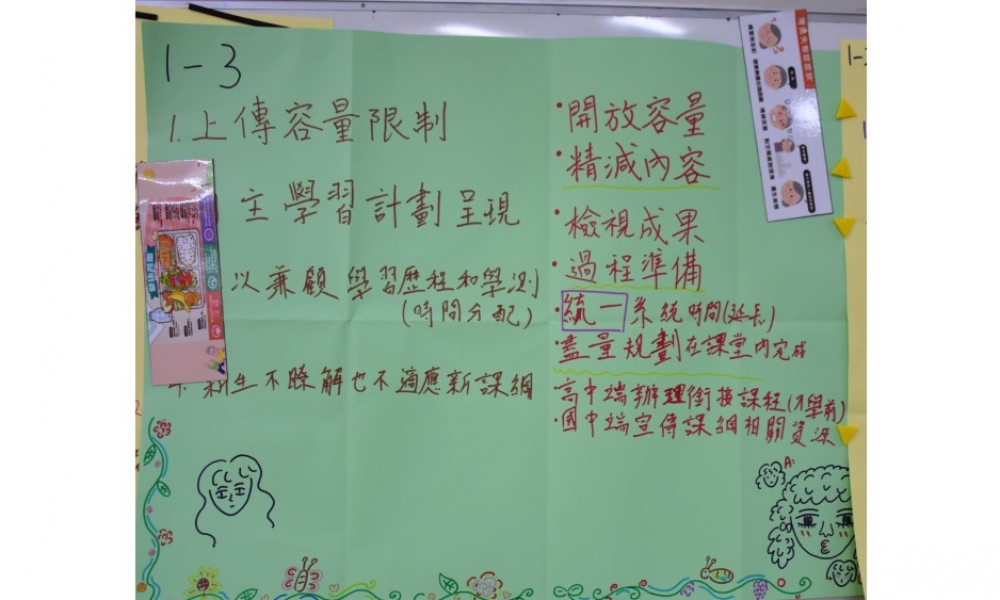 1-3
1.上傳容量限制
主學習計劃呈現
以兼顧學習歷程和學測
(時間分配)
新生不瞭解也不適應新課綱
·開放容量
·精減內容
·檢視成果
·過程準備
·統一系統時間(延長)
·盡量規劃在課堂內完成
高中端辦理銜接課程(入學前)
·國中端宣傳課綱相關資源